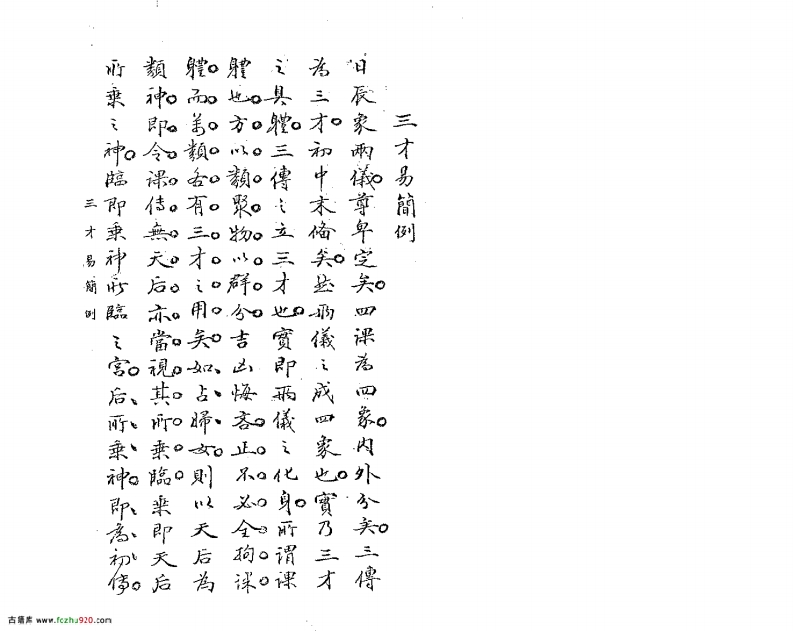 三才易簡例
日辰象兩儀。尊卑定矣。四課為四象。內外分矣。三傳
為三才。初中末備矣。然兩儀之成四象也。實乃三才
之具體。三傳之立三才也。實即兩儀之化身。所謂課
體也。方以類聚。物以群分。吉凶悔吝。正不必全拘課
體。而萬類各有三才之用矣。如占婦女。則以天后為
類神。即令課傳無天后。亦當視其所乘臨。乘即天后
所乘之神。臨即乘神所臨之宮。后所乘神。即為初傳。
三才易簡例
古籍库 www.fczhu920.com